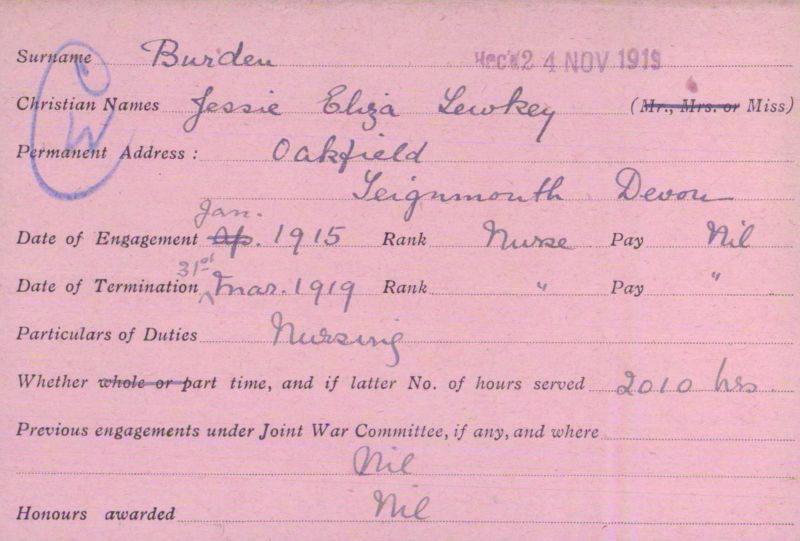 Surname Burden Rec'd 24 NOV 1919
Christian Names Jessie Eliza Lewkey (Mr., Mrs. or Miss)
W
Permanent Address: Oakfield
Teignmouth Devon
Jan.
Date of Engagement Ap. 1915 Rank Nurse Pay Nil
31st
Date of Termination Mar. 1919 Rank " Pay "
Particulars of Duties Nursing
Whether whole or part time, and if latter No. of hours served 2010 hrs.
Previous engagements under Joint War Committee, if any, and where
Nil
Honours awarded Nil